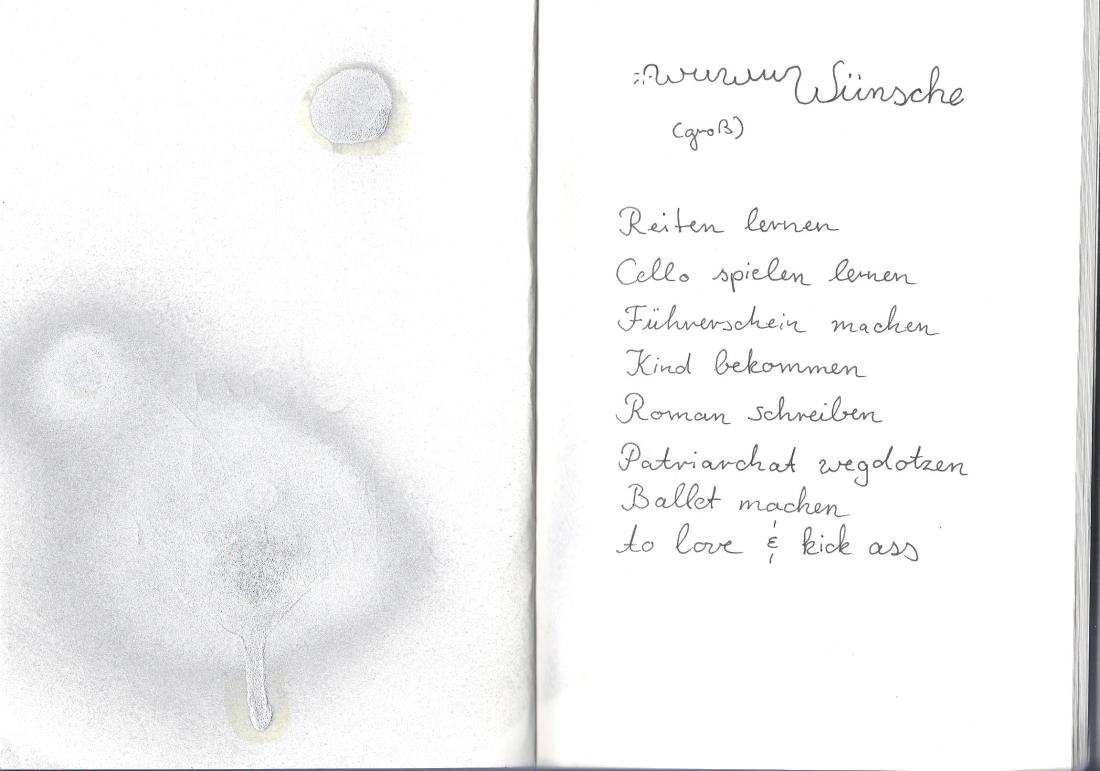 Wünsche
(groß)
Reiten lernen
Cello spielen lernen
Führerschein machen
Kind bekommen
Roman schreiben
Patriarchat wegdotzen
Ballet machen
to love & kick ass